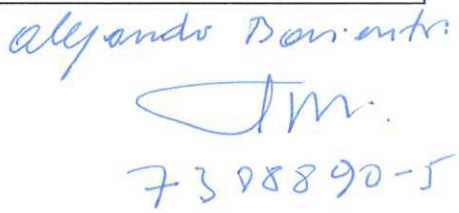 Alejandro Barrientos
7388890-5